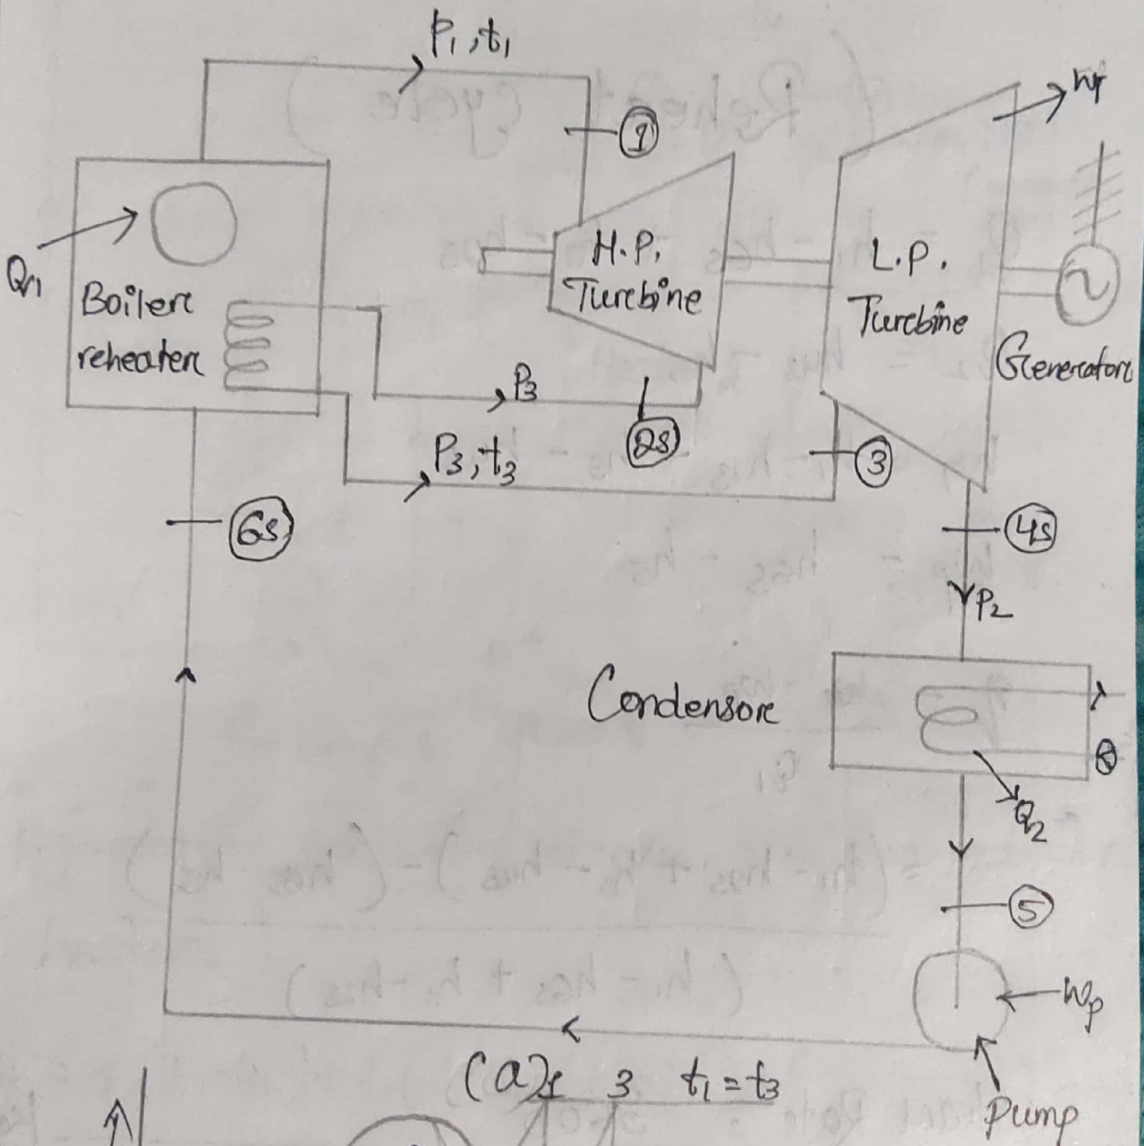 P₁, t₁
①
W_T
Q₁
Boiler
reheater
H.P.
Turbine
L.P.
Turbine
Generator
P₃
2s
P₃, t₃
③
6s
4s
P₂
Condensor
Q₂
⑤
W_p
(a) 1 3 t₁ = t₃
Pump